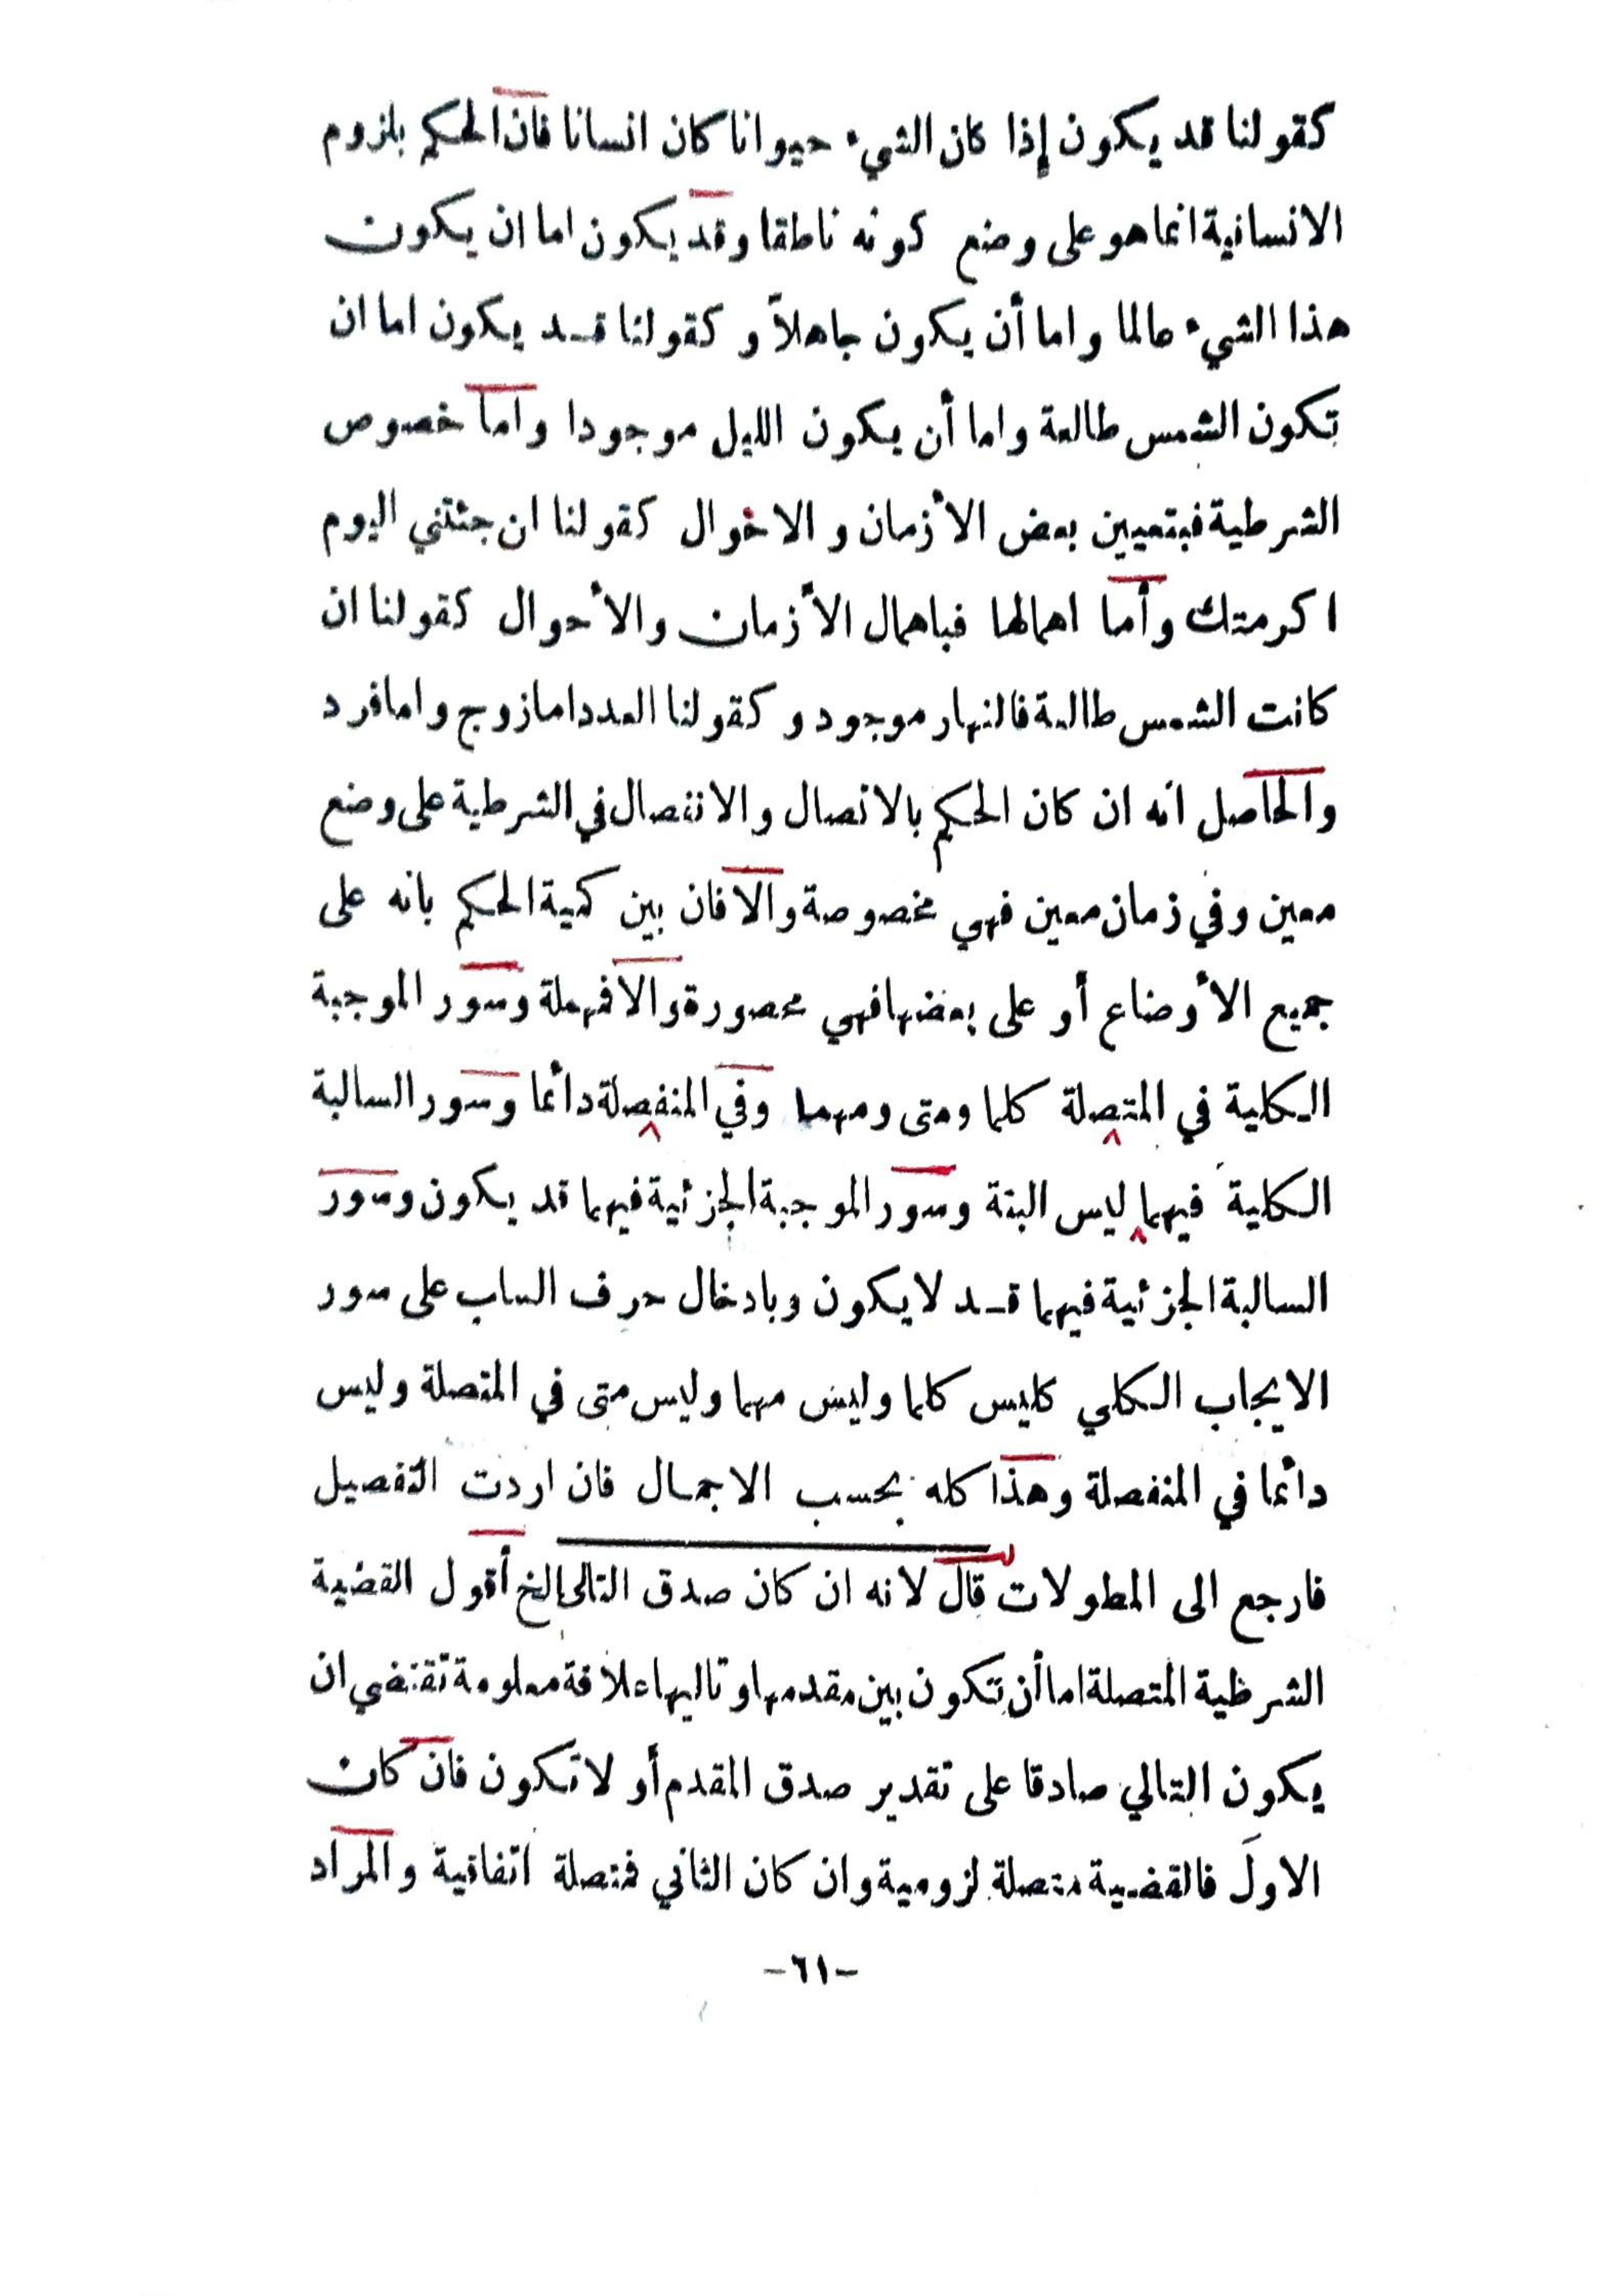 كقولنا قد يكون إذا كان الشيء حيوانا كان انسانا فان الحكم بلزوم
الانسانية انما هو على وضع كونه ناطقا وقد يكون اما ان يكون
هذا الشيء عالما واما أن يكون جاهلاً وكقولنا قد يكون اما ان
تكون الشمس طالعة واما أن يكون الليل موجودا واما خصوص
الشرطية فبتعيين بعض الأزمان والاخوال كقولنا ان جئتني اليوم
اكرمتك وأما اهمالها فباهمال الأزمان والأحوال كقولنا ان
كانت الشمس طالعة فالنهار موجود وكقولنا العدد اما زوج واما فرد
والحاصل انه ان كان الحكم بالاتصال والانفصال في الشرطية على وضع
معين وفي زمان معين فهي مخصوصة والا فان بين كمية الحكم بانه على
جميع الأوضاع أو على بعضها فهي محصورة والا فمهملة وسور الموجبة
الكلية في المتصلة كلما ومتى ومهما وفي المنفصلة دائما وسور السالبة
الكلية فيهما ليس البتة وسور الموجبة الجزئية فيهما قد يكون وسور
السالبة الجزئية فيهما قد لا يكون وبادخال حرف السلب على سور
الايجاب الكلي كليس كلما وليس مهما وليس متى في المتصلة وليس
دائما في المنفصلة وهذا كله بحسب الاجمال فان اردت التفصيل
فارجع الى المطولات قال لانه ان كان صدق التالى الخ أقول القضية
الشرطية المتصلة اما أن تكون بين مقدمها وتاليها علاقة معلومة تقتضي ان
يكون التالي صادقا على تقدير صدق المقدم أو لا تكون فان كان
الاولَ فالقضية متصلة لزومية وان كان الثاني فمتصلة اتفاقية والمراد
-٦١-